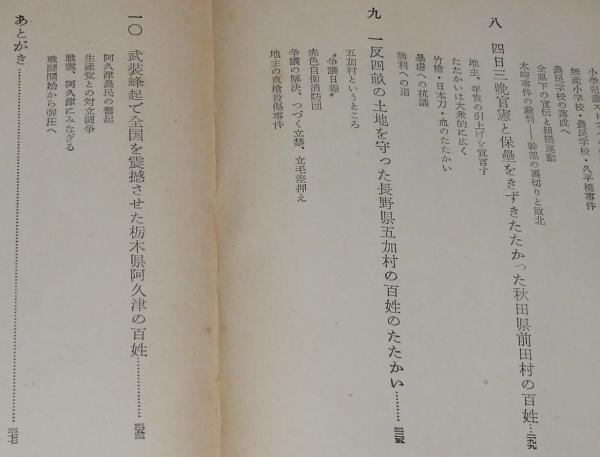 小学児童スト
無産小学校・農民学校・久平橋事件
農民学校の落成へ
全県下の宣伝と組織運動
木崎事件の裁判――幹部の裏切りと敗北
八 四日三晩官憲と保塁をきずきたたかった秋田県前田村の百姓…二九九
地主、年貢の引上げを宣言す
たたかいは大衆的に広く
竹槍・日本刀・血のたたかい
暴虐への抗議
勝利への道
九 一反四畝の土地を守った長野県五加村の百姓のたたかい………三三五
五加村というところ
“争議日報”
赤色自衛消防団
争議の解決、つづく立禁、立毛差押え
地主の直槍殺傷事件
一〇 武装蜂起で全国を震撼させた栃木県阿久津の百姓……………
阿久津農民の奮起
生産党との対立闘争
戦雲、阿久津にみなぎる
戦闘開始から弾圧へ
あとがき……………………………………………